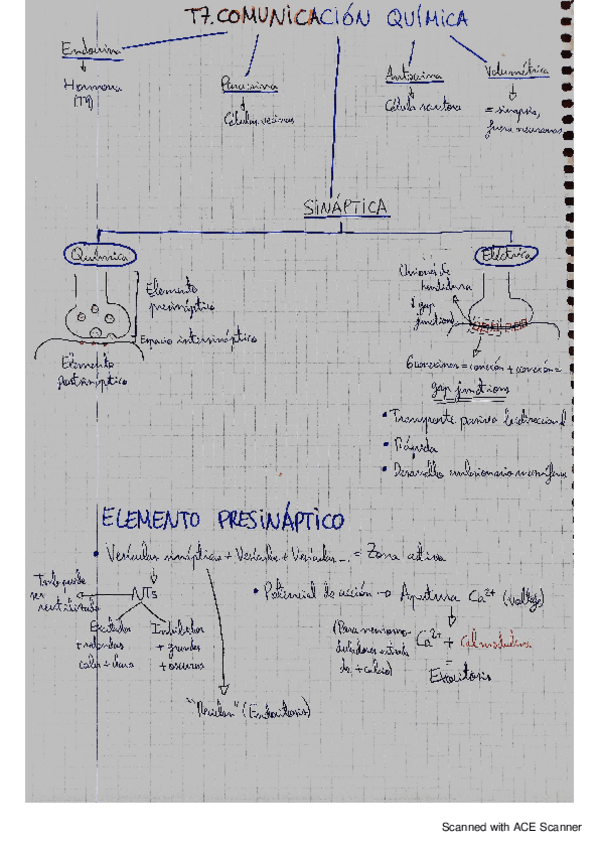 T7. COMUNICACIÓN QUÍMICA
Endocrina
Hormona
(T9)
Paracrina
Células vecinas
Autocrina
Célula secretora
Volumétrica
= sinapsis,
fuera neuronas
SINÁPTICA
Química
Elemento
presináptico
Espacio intersináptico
Elemento
Postsináptico
Eléctrica
Uniones de
hendidura
gap
junctions
6 conexinas = conexón + conexón =
gap junctions
• Transporte pasivo bidireccional
• Rápida
• Desarrollo embrionario mamíferos
ELEMENTO PRESINÁPTICO
• Vesículas sinápticas + Vesículas + Vesículas ... = Zona activa
Todo puede
ser
reutilizado
NTs
Excitador
+ redondas
Inhibidor
+ grandes
+ oscuras
"Reciclan" (Endocitosis)
• Potencial de acción → Apertura Ca²⁺ (voltaje)
(Para neuromo-
duladores
+ calcio)
Ca²⁺ + calmodulina
=
Exocitosis
Scanned with ACE Scanner